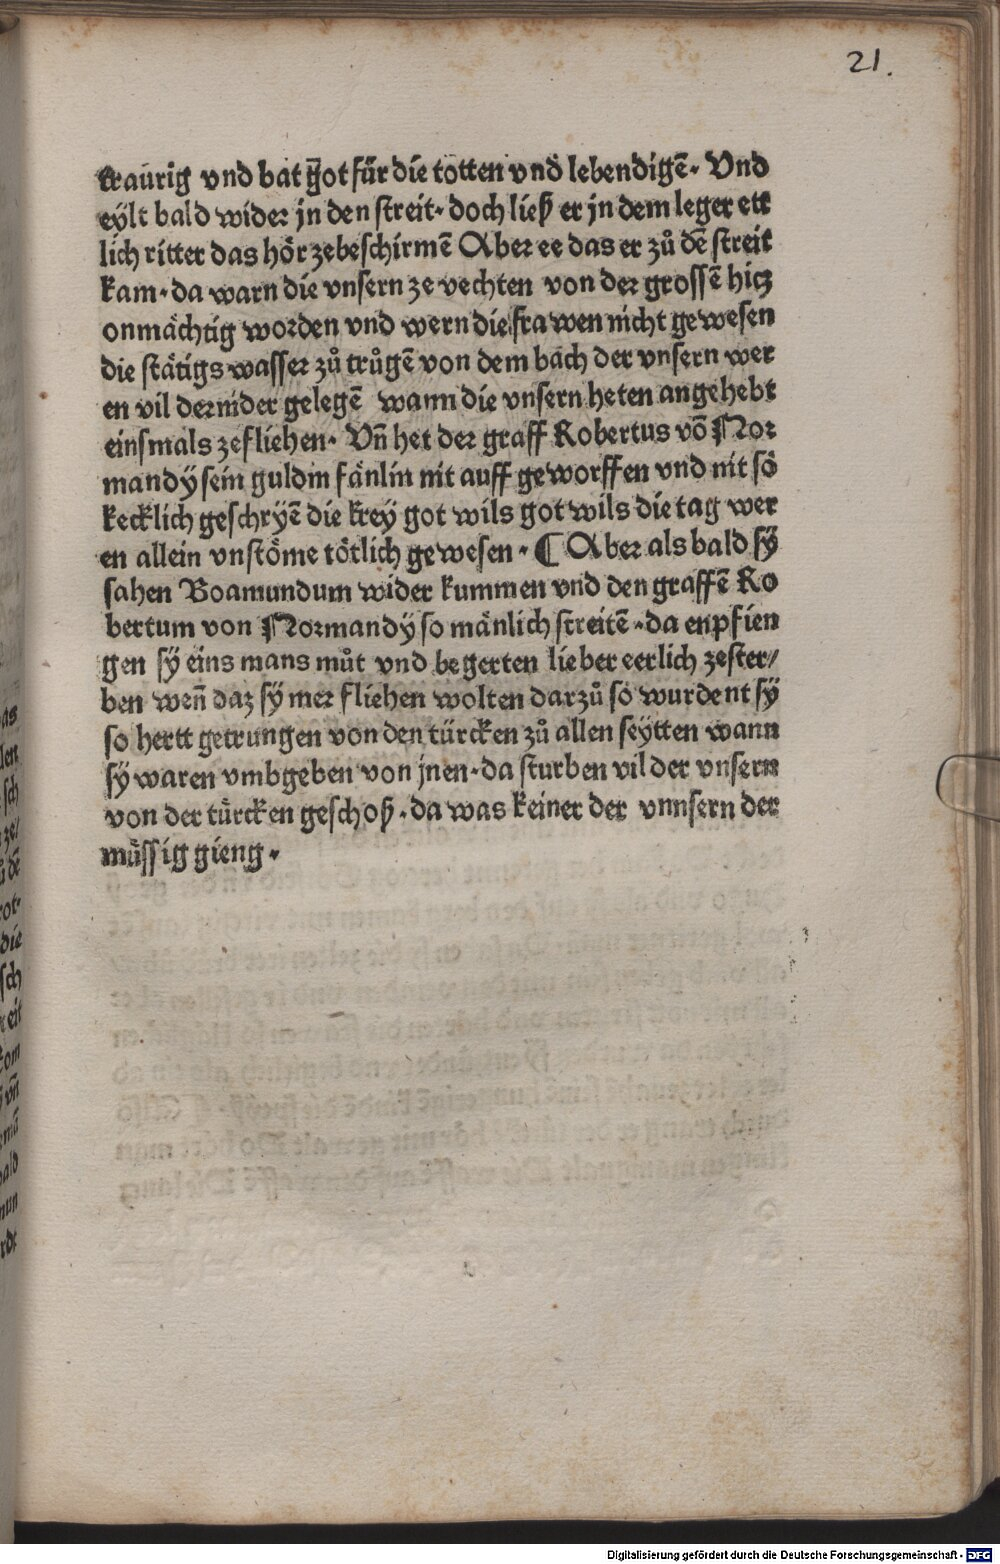 21.
traurig vnd bat got für die totten vnd lebendigẽ. Vnd
eylt bald wider jn den streit. doch ließ er jn dem leger ett
lich ritter das hör zebeschirmẽ Aber ee das er zů dẽ streit
kam. da warn die vnsern ze vechten von der grossẽ hicz
onmächtig worden vnd wern die frawen nicht gewesen
die stätigs wasser zů trůgẽ von dem bach der vnsern wer
en vil dernider gelegẽ wann die vnsern heten angehebt
einsmals zefliehen. Vñ het der graff Robertus võ Nor
mandÿ sein guldin fänlin nit auff geworffen vnd nit so
kecklich geschrÿẽ die kreÿ got wils got wils die tag wer
en allein vnstöme tötlich gewesen. ¶ Aber als bald sÿ
sahen Boamundum wider kummen vnd den graffẽ Ro
bertum von Normandÿ so mänlich streitẽ. da enpfien
gen sÿ eins mans můt vnd begerten lieber eerlich zester/
ben weñ daz sÿ mer fliehen wolten darzů so wurdent sÿ
so hertt getrungen von den türcken zů allen seÿtten wann
sÿ waren vmbgeben von jnen. da sturben vil der vnsern
von der türcken geschoß. da was keiner der vnnsern der
müssig gieng.
Digitalisierung gefördert durch die Deutsche Forschungsgemeinschaft - DFG